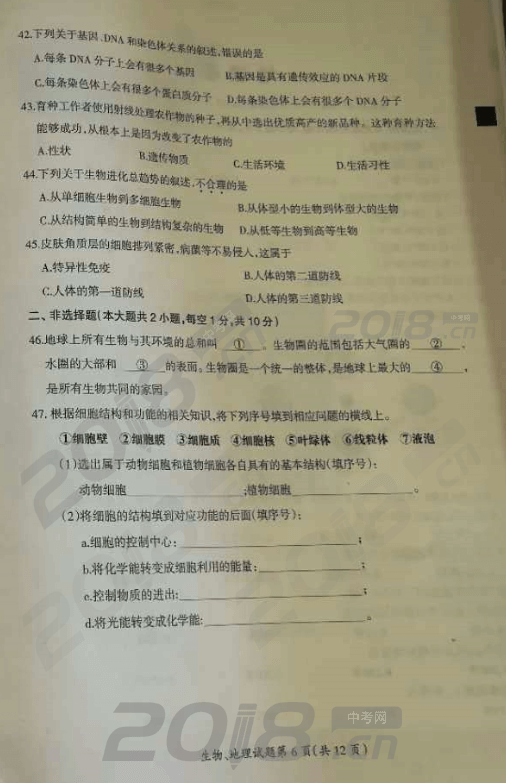 42.下列关于基因、DNA 和染色体关系的叙述,错误的是
A.每条 DNA 分子上会有很多个基因
B.基因是具有遗传效应的 DNA 片段
C.每条染色体上会有很多个蛋白质分子
D.每条染色体上会有很多个 DNA 分子
43.育种工作者使用射线处理农作物的种子,再从中选出优质高产的新品种。这种育种方法
能够成功,从根本上是因为改变了农作物的
A.性状
B.遗传物质
C.生活环境
D.生活习性
44.下列关于生物进化总趋势的叙述,不合理的是
A.从单细胞生物到多细胞生物
B.从体型小的生物到体型大的生物
C.从结构简单的生物到结构复杂的生物
D.从低等生物到高等生物
45.皮肤角质层的细胞排列紧密,病菌等不易侵人,这属于
A.特异性免疫
B.人体的第二道防线
C.人体的第一道防线
D.人体的第三道防线
二、非选择题(本大题共 2 小题,每空 1 分,共 10 分)
46.地球上所有生物与其环境的总和叫 ① 。生物圈的范围包括大气圈的 ② 、
水圈的大部和 ③ 的表面。生物圈是一个统一的整体,是地球上最大的 ④ ,
是所有生物共同的家园。
47.根据细胞结构和功能的相关知识,将下列序号填到相应问题的横线上。
①细胞壁 ②细胞膜 ③细胞质 ④细胞核 ⑤叶绿体 ⑥线粒体 ⑦液泡
(1)选出属于动物细胞和植物细胞各自具有的基本结构(填序号):
动物细胞 ;植物细胞 。
(2)将细胞的结构填到对应功能的后面(填序号):
a.细胞的控制中心: ;
b.将化学能转变成细胞利用的能量: ;
c.控制物质的进出: ;
d.将光能转变成化学能: 。
生物、地理试题第 6 页(共 12 页)
2018.cn
中考网